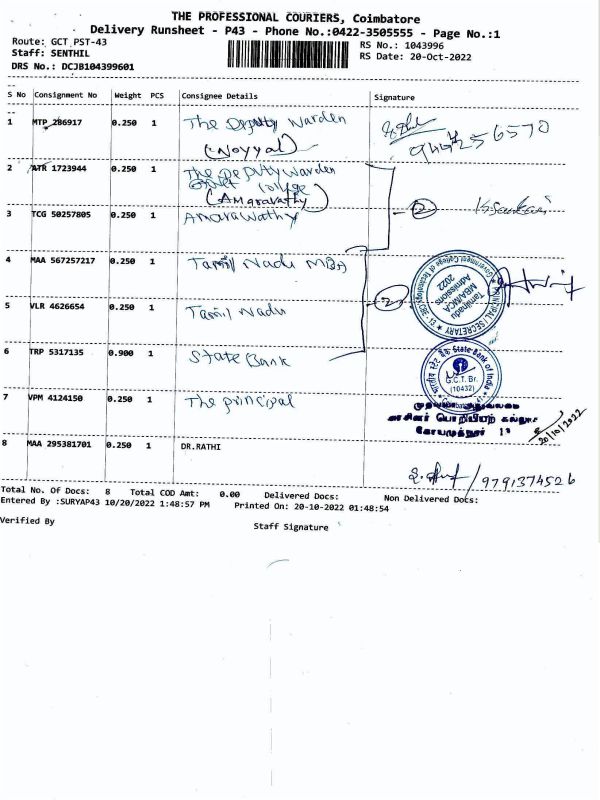 THE PROFESSIONAL COURIERS, Coimbatore
Delivery Runsheet - P43 - Phone No.:0422-3505555 - Page No.:1
Route: GCT PST-43
RS No.: 1043996
Staff: SENTHIL
RS Date: 20-Oct-2022
DRS No.: DCJB104399601
S No Consignment No Weight PCS Consignee Details Signature
1 MTP 286917 0.250 1 The Deputy Warden
(Noyyal)
2 ATR 1723944 0.250 1 The Deputy Warden
(Amaravathy)
3 TCG 50257805 0.250 1 Amarawathy
2
4 MAA 567257217 0.250 1 Tamil Nadu MBA
2
Tamilnadu
MBA/MCA
Admissions
2022
5 VLR 4626654 0.250 1 Tamil Nadu
6 TRP 5317135 0.900 1 State Bank
State Bank of India
G.C.T. Br.
(10432)
7 VPM 4124150 0.250 1 The principal
20/10/2022
8 MAA 295381701 0.250 1 DR.RATHI
9791374526
Total No. Of Docs: 8 Total COD Amt: 0.00 Delivered Docs: Non Delivered Docs:
Entered By :SURYAP43 10/20/2022 1:48:57 PM Printed On: 20-10-2022 01:48:54
Verified By
Staff Signature